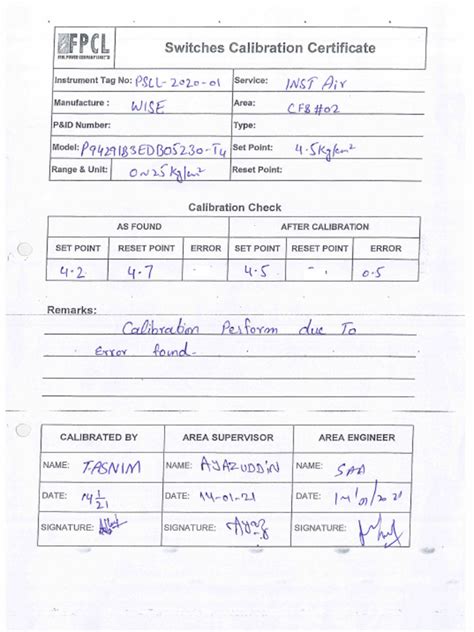 FPCL
Switches Calibration Certificate
Instrument Tag No: PSLL-2020-01 Service: INST Air
Manufacture : WISE Area: CFB#02
P&ID Number: Type:
Model: P9429183EDB05230-T4 Set Point: 4.5Kg/cm²
Range & Unit: 0~25 Kg/cm² Reset Point:
Calibration Check
AS FOUND AFTER CALIBRATION
SET POINT RESET POINT ERROR SET POINT RESET POINT ERROR
4.2 4.7 4.5 - 0.5
Remarks:
Calibration Perform due To
Error found.
CALIBRATED BY AREA SUPERVISOR AREA ENGINEER
NAME: TASNIM NAME: AYAZUDDIN NAME: SAA
DATE: 14/1/21 DATE: 14-01-21 DATE: 14/01/2021
SIGNATURE: SIGNATURE: Ayaz SIGNATURE: